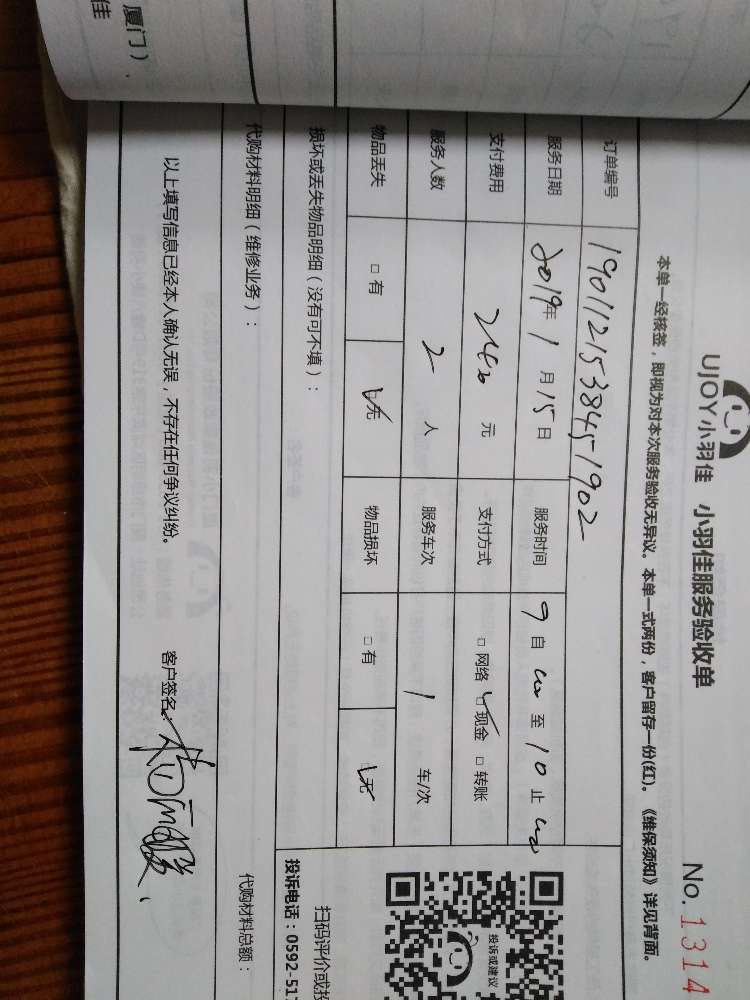 厦门）、
佳
UJOY小羽佳 小羽佳服务验收单
No. 1314
本单一经核签，即视为对本次服务验收无异议。本单一式两份，客户留存一份(红)。《维保须知》详见背面。
订单编号 1901121538451902
服务日期 2019年 1 月 15 日 服务时间 9 自 00 至 10 止 00
支付费用 元 支付方式 □ 网络 ☑ 现金 □ 转账
服务人数 2 人 服务车次 1 车/次
物品丢失 □ 有 ☑ 无 物品损坏 □ 有 ☑ 无
损坏或丢失物品明细（没有可不填）：
投诉或建议
扫码评价或投
投诉电话：0592-51
代购材料明细（维修业务）： 代购材料总额：
以上填写信息已经本人确认无误，不存在任何争议纠纷。 客户签名：